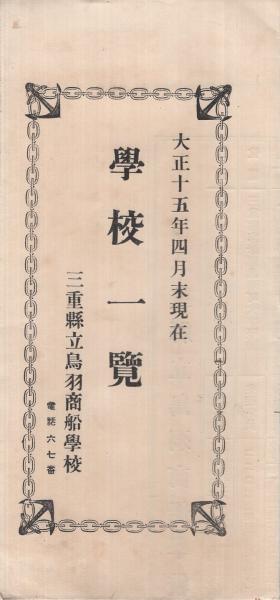 大正十五年四月末現在
學校一覽
三重縣立鳥羽商船學校
電話六七番